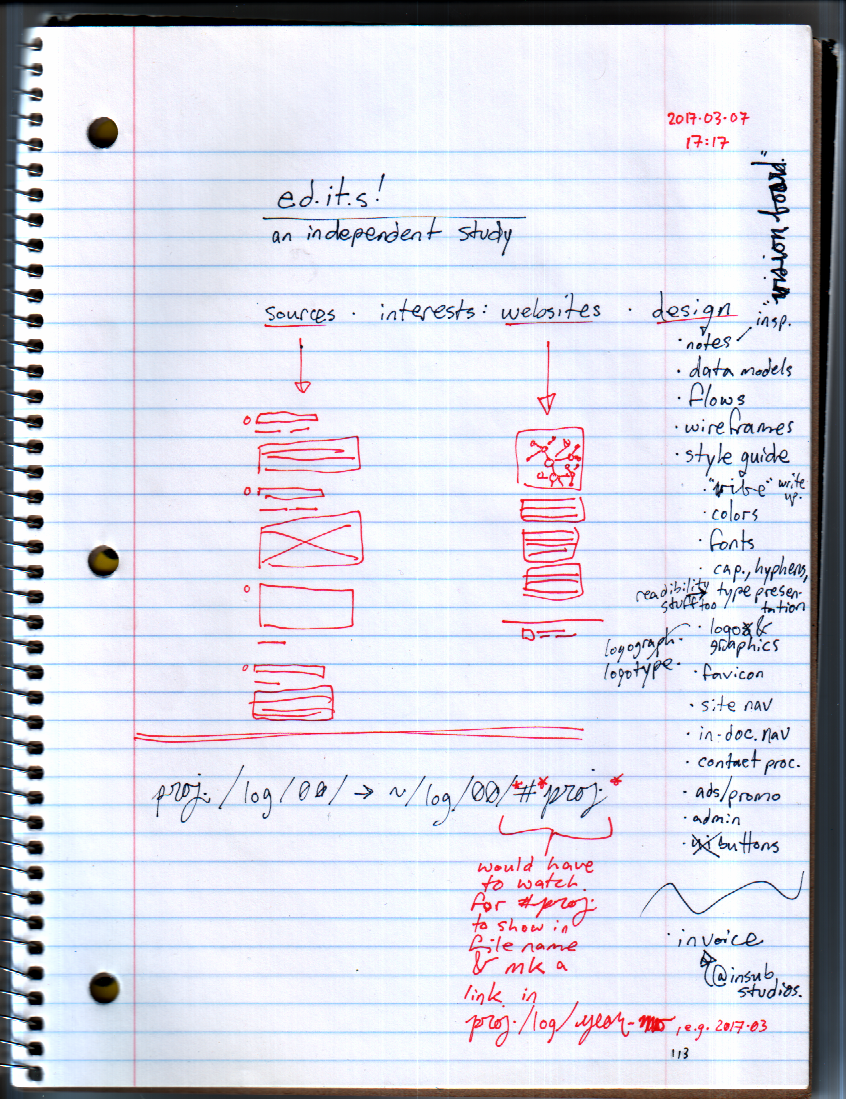 2017.03.07
17:17
"vision board"
ed.it.s!
an independent study
sources · interests: websites · design
insp.
· notes
· data models
· flows
· wireframes
· style guide
· "vibe" write up.
· colors
· fonts
· cap., hyphens,
readibility stuff too → type presentation
· logos &
graphics
logograph.
logotype.
· favicon
· site nav
· in-doc. nav
· contact proc.
· ads/promo
· admin
· buttons
proj. /log/00/ → ~/log/00/*#*proj.*
would have
to watch
for #proj.
to show in
file name
& mk a
link in
proj./log/year-mo, e.g. 2017.03
· invoice
@insub.
studios.
113